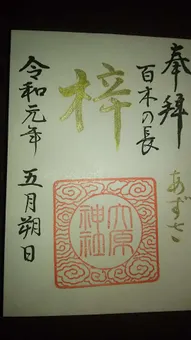 奉拝
百木の長
あずさ
梓
六原
神社
令和元年 五月朔日